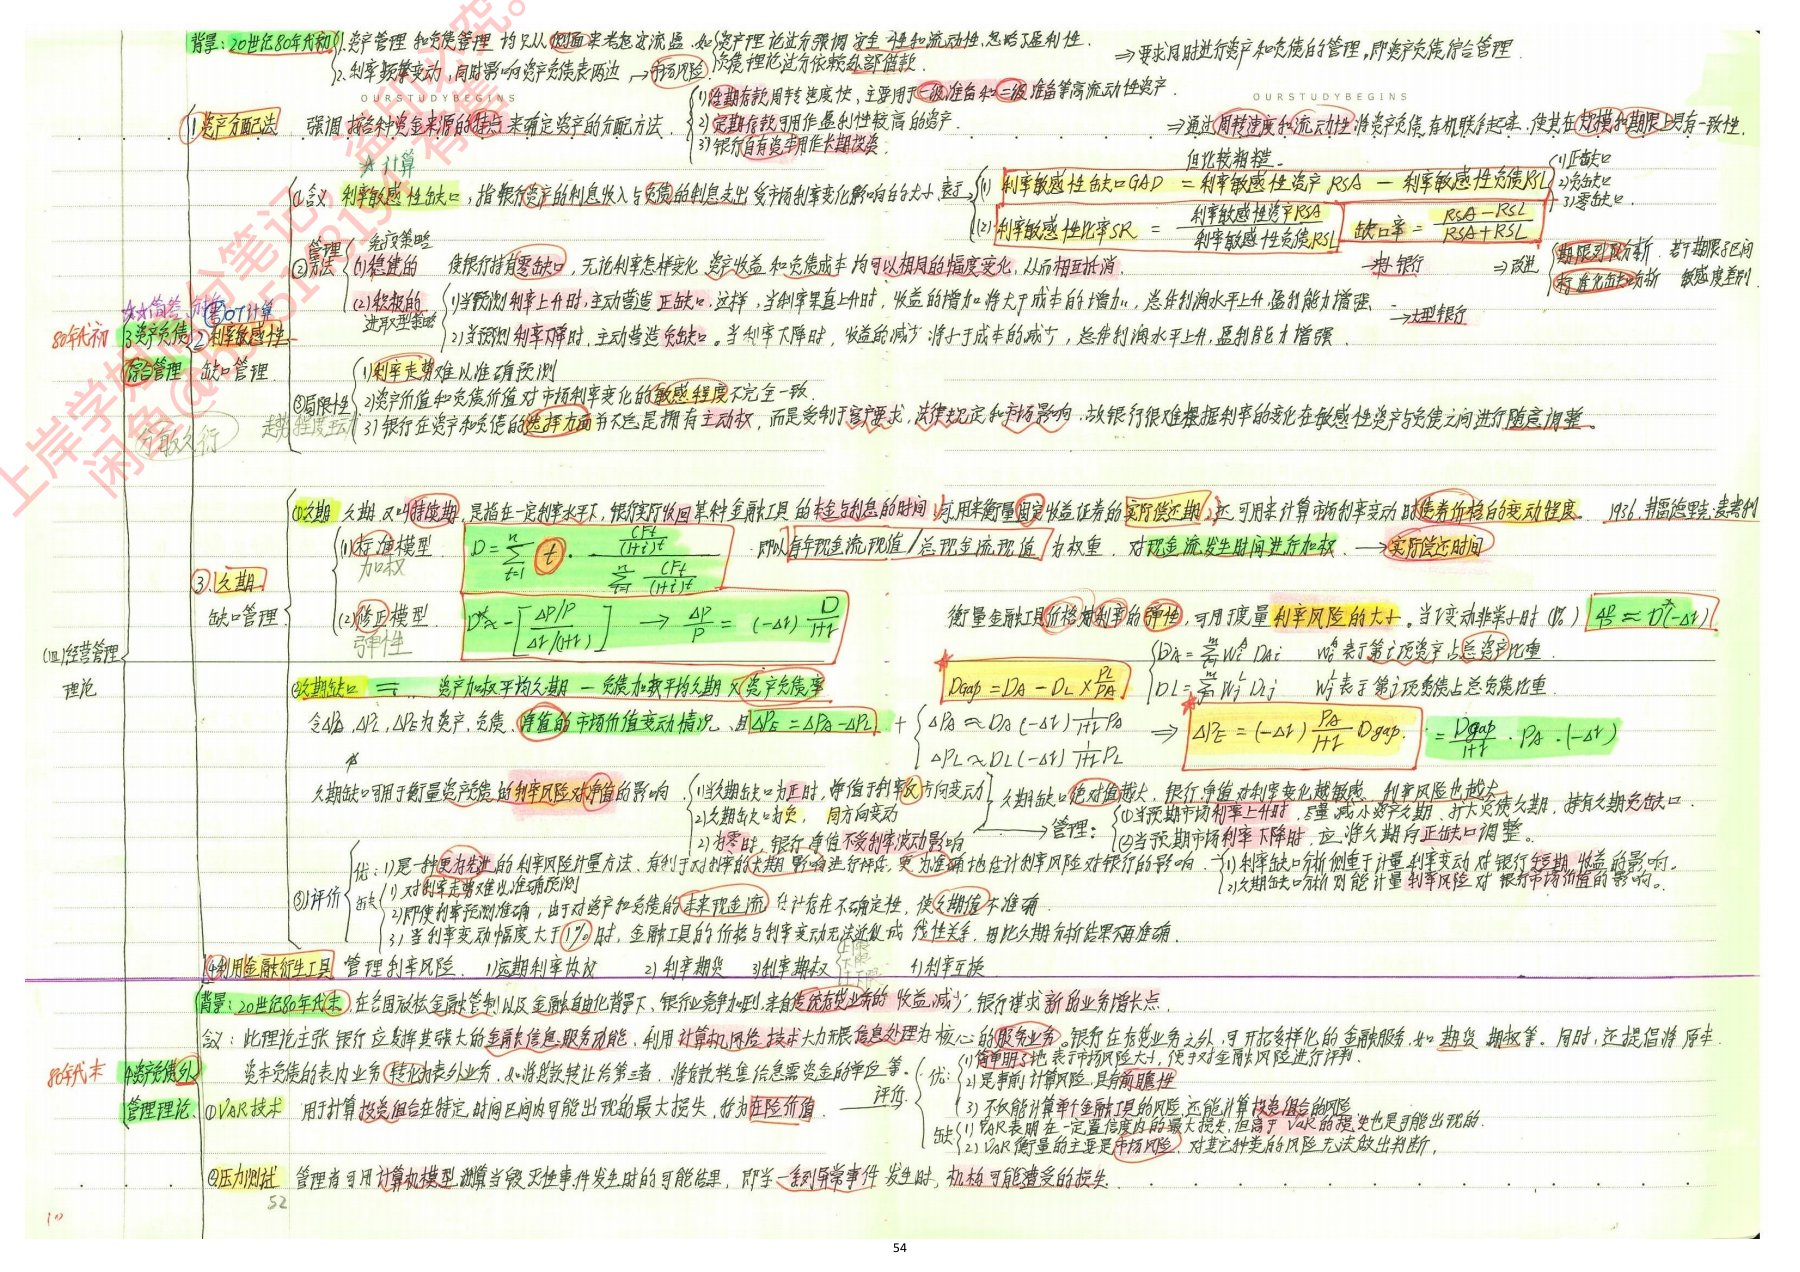 背景：20世纪80年代初 1.资产管理和负债管理均只从侧面来考虑资流盈，如资产理论过分强调安全性和流动性，忽略了盈利性．
负债理论过分依赖外部借款．
2.利率频繁变动，同时影响资产负债表两边 →市场风险
⇒要求同时进行资产和负债的管理，即资产负债综合管理．
OURSTUDYBEGINS
OURSTUDYBEGINS
1.资产分配法 强调按各种资金来源的特点来确定资产的分配方法．
1)活期存款周转速度快，主要用于一级准备和二级准备等高流动性资产．
2)定期存款可用作盈利性较高的资产．
3)银行自有资本用作长期投资．
⇒通过周转速度和流动性将资产负债有机联系起来，使其在规模和期限上具有一致性．
但比较粗糙．
☆计算
①含义 利率敏感性缺口，指银行资产的利息收入与负债的利息支出受市场利率变化影响的大小 表示
(1) 利率敏感性缺口GAD = 利率敏感性资产RSA - 利率敏感性负债RSL
1)正缺口
2)负缺口
3)零缺口．
(2)利率敏感性比率SR = 利率敏感性资产RSA / 利率敏感性负债RSL 缺口率 = RSA-RSL / RSA+RSL
②管理方法
免疫策略
(1)稳健的 使银行持有零缺口，无论利率怎样变化，资产收益和负债成本均可以相同的幅度变化，从而相互抵消． →中小银行
⇒改进 期限列段分析．若干期限子区间
标准化缺口分析 敏感度差别．
(2)积极的 进取型策略
1)当预测利率上升时，主动营造正缺口，这样，当利率果真上升时，收益的增加将大于成本的增加，总体利润水平上升，盈利能力增强．
2)当预测利率下降时，主动营造负缺口。当利率下降时，收益的减少将小于成本的减少，总体利润水平上升，盈利能力增强．
→大型银行
☆☆简答
OT计算
80年代初 3.资产负债综合管理
2.利率敏感性缺口管理．
③局限性
1)利率走势难以准确预测
2)资产价值和负债价值对市场利率变化的敏感程度不完全一致．
3)银行在资产和负债的选择方面并不总是拥有主动权，而是受制于客户要求，法律规定和市场影响，故银行很难根据利率的变化在敏感性资产与负债之间进行随意调整。
走势 程度 主动
分敏久行
3.久期缺口管理
①久期 久期又叫持续期，是指在一定利率水平下，银行实际收回某种金融工具的本金与利息的时间，可用来衡量固定收益证券的实际偿还期，还可用来计算市场利率变动时债券价格的变动程度． 1936.弗雷德里克·麦考利
(1)标准模型 加权
D = Σ(t=1→n) t · [CFt/(1+i)^t] / [Σ(t=1→n) CFt/(1+i)^t]
即以每年现金流现值/总现金流现值 为权重，对现金流发生时间进行加权． →实际偿还时间
(2)修正模型 弹性
D*≈-[ΔP/P / Δr/(1+r)] → ΔP/P = (-Δr) D/1+r
衡量金融工具价格对利率的弹性，可用于度量利率风险的大小．当r变动非常小时(1%) ΔP/P ≈ D*(-Δr)
②久期缺口 = 资产加权平均久期 - 负债加权平均久期 × 资产负债率
Dgap = DA - DL × PL/PA
DA = Σ WiA DAi WiA表示第i项资产占总资产比重．
DL = Σ WjL DLj WjL表示第j项负债占总负债比重．
令ΔPA，ΔPL，ΔPE为资产，负债，净值的市场价值变动情况，且 ΔPE = ΔPA - ΔPL +
ΔPA ≈ DA(-Δr) 1/1+r PA
ΔPL ≈ DL(-Δr) 1/1+r PL
⇒ ΔPE = (-Δr) PA/1+r Dgap． = Dgap/1+r · PA · (-Δr)
久期缺口可用于衡量资产负债的利率风险对净值的影响．
1)当久期缺口为正时，净值于利率反方向变动
2)久期缺口为负， 同方向变动
3)为零时，银行净值不受利率波动影响
久期缺口绝对值越大，银行净值对利率变化越敏感，利率风险也越大
→管理：
①当预期市场利率上升时，尽量减小资产久期，扩大负债久期，持有久期负缺口．
②当预期市场利率下降时，应将久期向正缺口调整。
③评价
优：1)是一种更为先进的利率风险计量方法，有利于对利率的长期影响进行评估，更为准确地估计利率风险对银行的影响．
1)利率缺口分析侧重于计量利率变动对银行短期收益的影响。
2)久期缺口分析则能计量利率风险对银行市场价值的影响。
缺 1)对利率走势难以准确预测
2)即使利率预测准确，由于对资产和负债的未来现金流估计存在不确定性，使久期值不准确．
3)当利率变动幅度大于1%时，金融工具的价格与利率变动无法近似成线性关系，因此久期分析结果不再准确．
4.利用金融衍生工具 管理利率风险． 1)远期利率协议 2)利率期货 3)利率期权 4)利率互换
(三)经营管理理论
背景：20世纪80年代末，在各国放松金融管制以及金融自由化背景下，银行业竞争加剧，来自传统存贷业务的收益减少，银行谋求新的业务增长点．
含义：此理论主张银行应发挥其强大的金融信息服务功能，利用计算机网络技术大力开展信息处理为核心的服务业务。银行在存贷业务之外，可开拓多样化的金融服务，如期货 期权等。同时，还提倡将原本
资产负债的表内业务转化为表外业务，如将贷款转让给第三者，将存款转售给急需资金的单位等。
80年代末 4.资产负债外管理理论．
①VAR技术 用于计算投资组合在特定时间区间内可能出现的最大损失，称为在险价值． 评价
优：1)简单明了地表示市场风险大小，便于对金融风险进行评判．
2)是事前计算风险，具有前瞻性
3)不仅能计算单个金融工具的风险，还能计算投资组合的风险
缺 1)VAR表明在一定置信度内的最大损失，但高于VaR的损失也是可能出现的．
2)VAR衡量的主要是市场风险，对其它种类的风险无法做出判断，
②压力测试 管理者可用计算机模型测算当毁灭性事件发生时的可能结果，即当一系列异常事件发生时，机构可能遭受的损失．
52
10
54